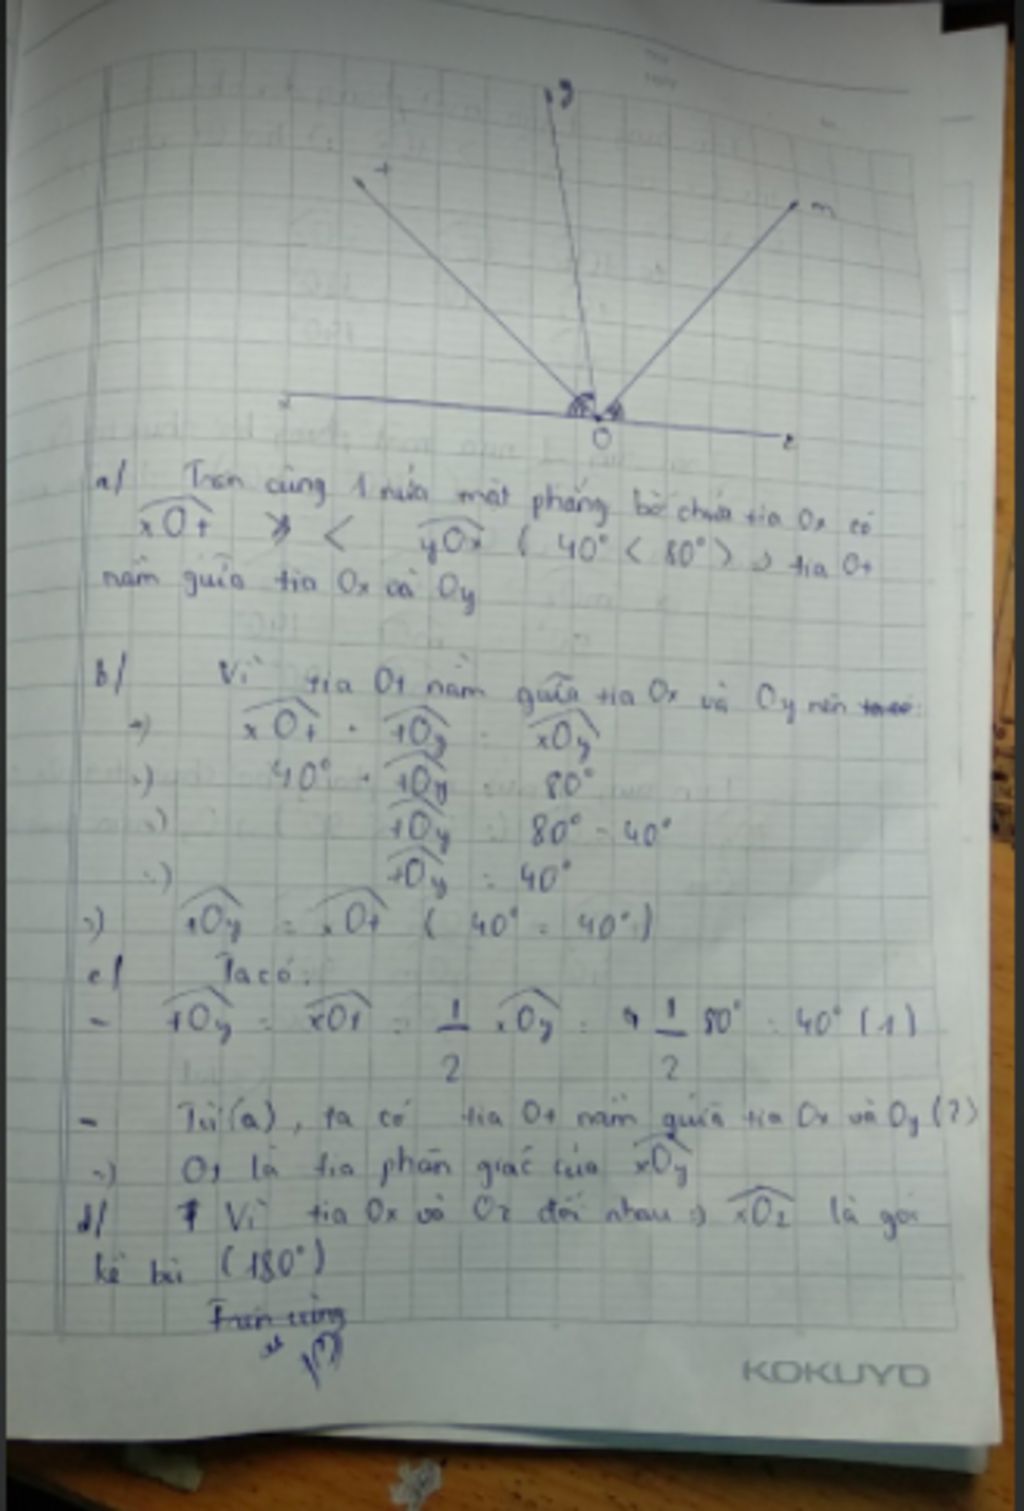 y
t
m
x
O
z
a/ Trên cùng 1 nửa mặt phẳng bờ chứa tia Ox có
xOt < yOx ( 40° < 80° ) => tia Ot
nằm giữa tia Ox và Oy
b/ Vì tia Ot nằm giữa tia Ox và Oy nên
=> xOt + tOy = xOy
=> 40° + tOy = 80°
=> tOy = 80° - 40°
=> tOy = 40°
=> tOy = xOt ( 40° = 40° )
c/ Ta có:
- tOy = xOt = 1/2 xOy = 1/2 80° = 40° (1)
- Từ (a), ta có tia Ot nằm giữa tia Ox và Oy (2)
=> Ot là tia phân giác của xOy
d/ Vì tia Ox và Oz đối nhau => xOz là góc
kề bù (180°)
Trên cùng
KOKUYO